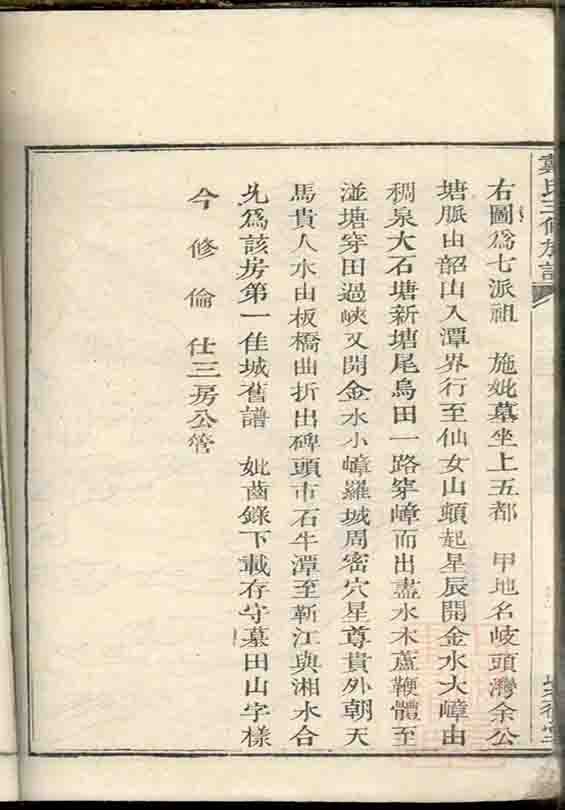 戴氏三修族譜
右圖爲七派祖　施妣墓坐上五都　甲地名岐頭灣余公
塘脈由韶山入潭界行至仙女山頓起星辰開金水大嶂由
稠泉大石塘新塘尾烏田一路穿嶂而出盡水木蘆鞭體至
湴塘穿田過峽又開金水小嶂羅城周密穴星尊貴外朝天
馬貴人水由板橋曲折出碑頭市石牛潭至靳江與湘水合
允爲該房第一佳城舊譜　妣齒錄下載存守墓田山字樣
今修倫仕三房公管